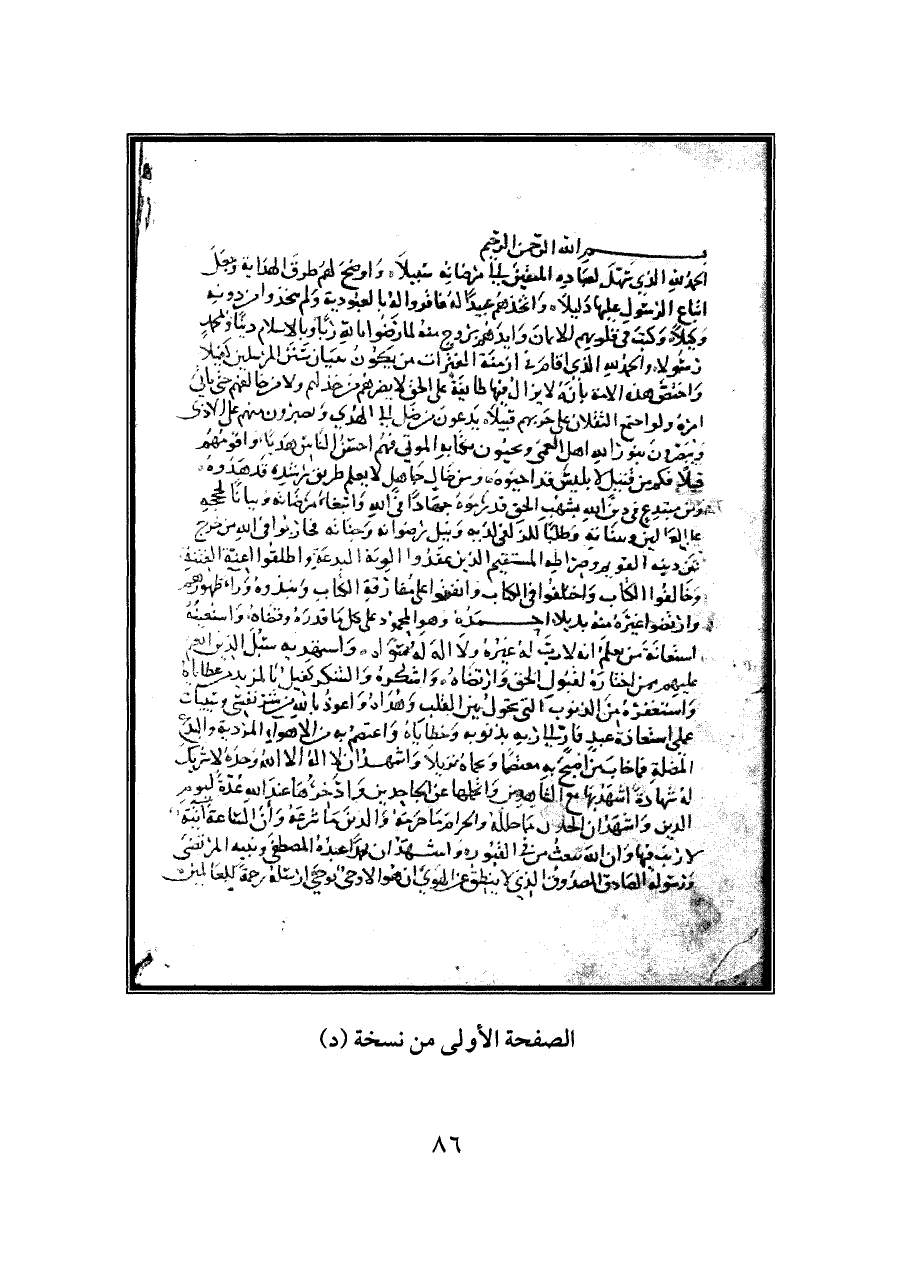 بسم الله الرحمن الرحيم
الحمد لله الذي سهل لعباده المتقين إلى مرضاته سبيلا، وأوضح لهم طرق الهداية وجعل
اتباع الرسول عليها دليلا، واتخذهم عبيدا له فأقروا له بالعبودية ولم يتخذوا من دونه
وكيلا، وكتب في قلوبهم الإيمان وأيدهم بروح منه لما رضوا بالله ربا وبالإسلام دينا وبمحمد
رسولا، والحمد لله الذي أقام في أزمنة الفترات من يكون ببيان سنن المرسلين كفيلا
واختص هذه الأمة بأنه لا يزال فيها طائفة على الحق لا يضرهم من خذلهم ولا من خالفهم حتى يأتي
أمره ولو اجتمع الثقلان على حربهم قبيلا، يدعون من ضل إلى الهدى ويصبرون منهم على الأذى
ويبصرون بنور الله أهل العمى ويحيون بكتابه الموتى فهم أحسن الناس هديا وأقومهم
قيلا فكم من قتيل لإبليس قد أحيوه، ومن ضال جاهل لا يعلم طريق رشده قد هدوه،
ومن مبتدع في دين الله بشهب الحق قد رموه جهادا في الله وابتغاء مرضاته وبيانا لحججه
على العالمين وبيناته وطلبا للزلفى لديه ونيل رضوانه وجناته فحاربوا في الله من خرج
عن دينه القويم وصراطه المستقيم الذين عقدوا ألوية البدعة وأطلقوا أعنة الفتنة
وخالفوا الكتاب واختلفوا في الكتاب واتفقوا على مفارقة الكتاب ونبذوه وراء ظهورهم
وارتضوا غيره منه بديلا أحمده وهو المحمود على كل ما قدره وقضاه، وأستعينه
استعانة من يعلم أنه لا رب له غيره ولا إله له سواه، وأستهديه سبل الذين أنعم
عليهم ممن اختاره لقبول الحق وارتضاه، وأشكره والشكر كفيل بالمزيد من عطاياه
وأستغفره من الذنوب التي تحول بين القلب وهداه، وأعوذ بالله من شر نفسي وسيئات
عملي استعاذة عبد فار إلى ربه بذنوبه وخطاياه وأعتصم به من الأهواء المردية والبدع
المضلة فما خاب من أصبح به معتصما وبحماه نزيلا وأشهد أن لا إله إلا الله وحده لا شريك
له شهادة أشهد بها مع الشاهدين وأتحملها عن الجاحدين وأدخرها عند الله عدة ليوم
الدين وأشهد أن الحلال ما حلله والحرام ما حرمه والدين ما شرعه وأن الساعة آتية
لا ريب فيها وأن الله يبعث من في القبور، وأشهد أن محمدا عبده المصطفى ونبيه المرتضى
ورسوله الصادق المصدوق الذي لا ينطق عن الهوى إن هو إلا وحي يوحى أرسله رحمة للعالمين
الصفحة الأولى من نسخة (د)
٨٦